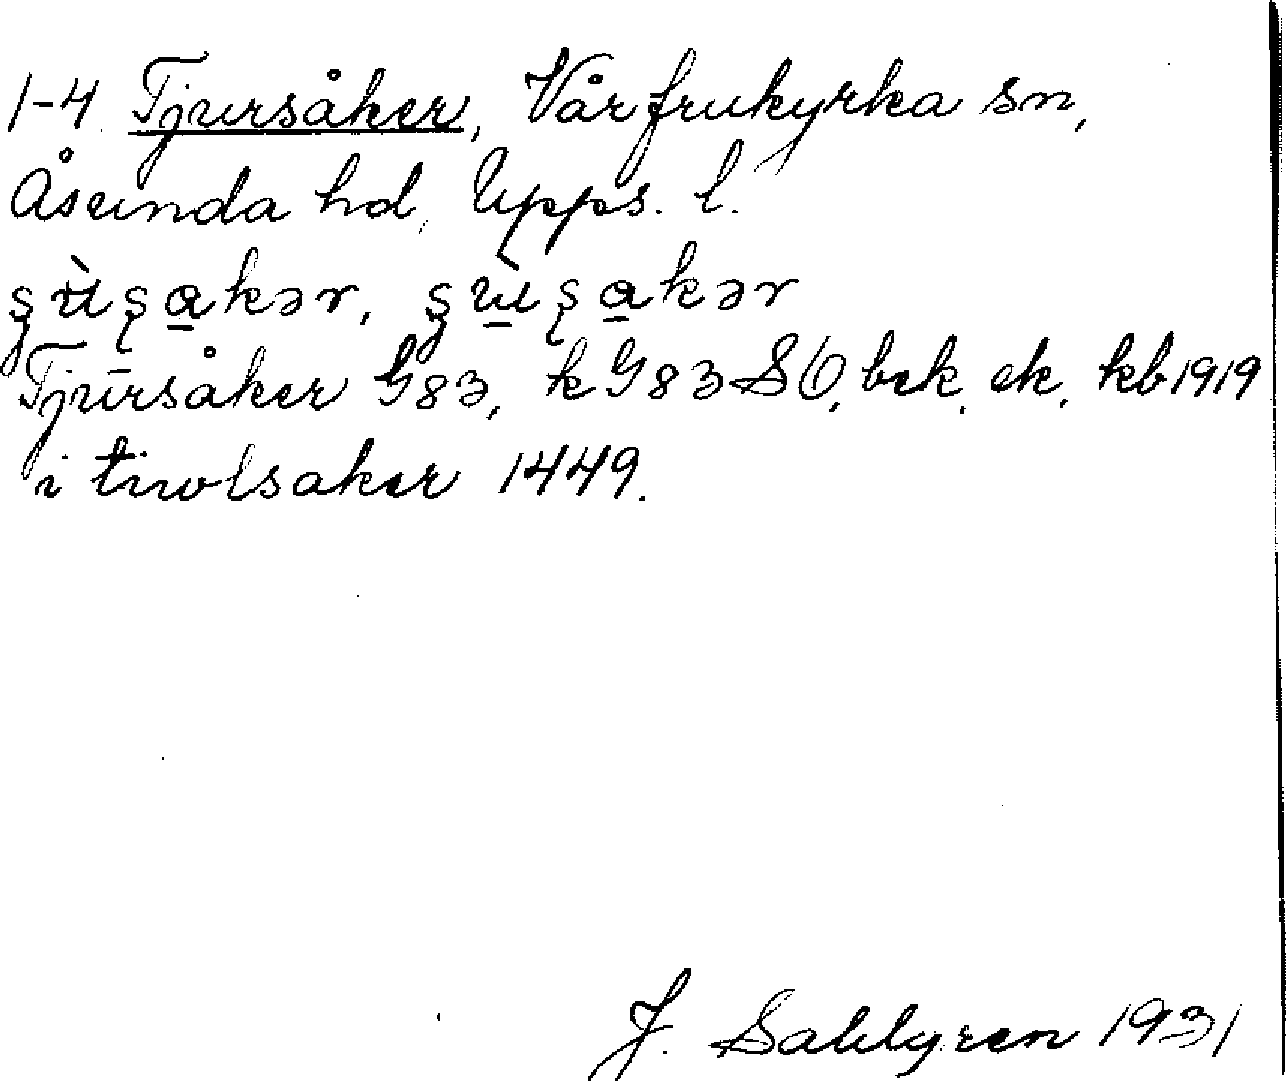 1-4 Tjursåker, Vårfrukyrka sn,
Åsunda hd, Upps. l.
Tjursåker G83, k G83 SO, bek, ek, kb 1919
i tiwlsaker 1449.
J. Sahlgren 1931